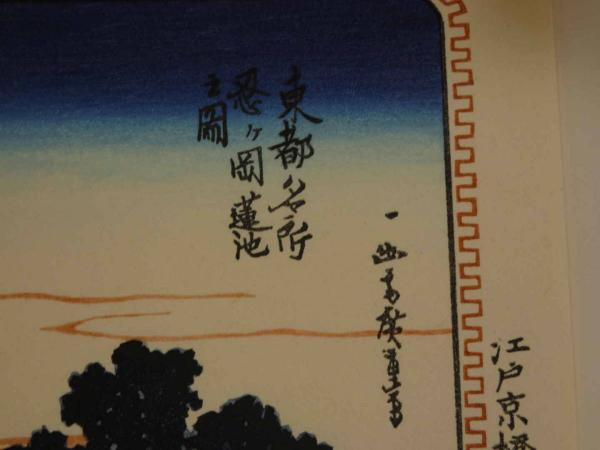 東都名所
忍ヶ岡蓮池
之圖
一幽斎廣重画
江戸京橋